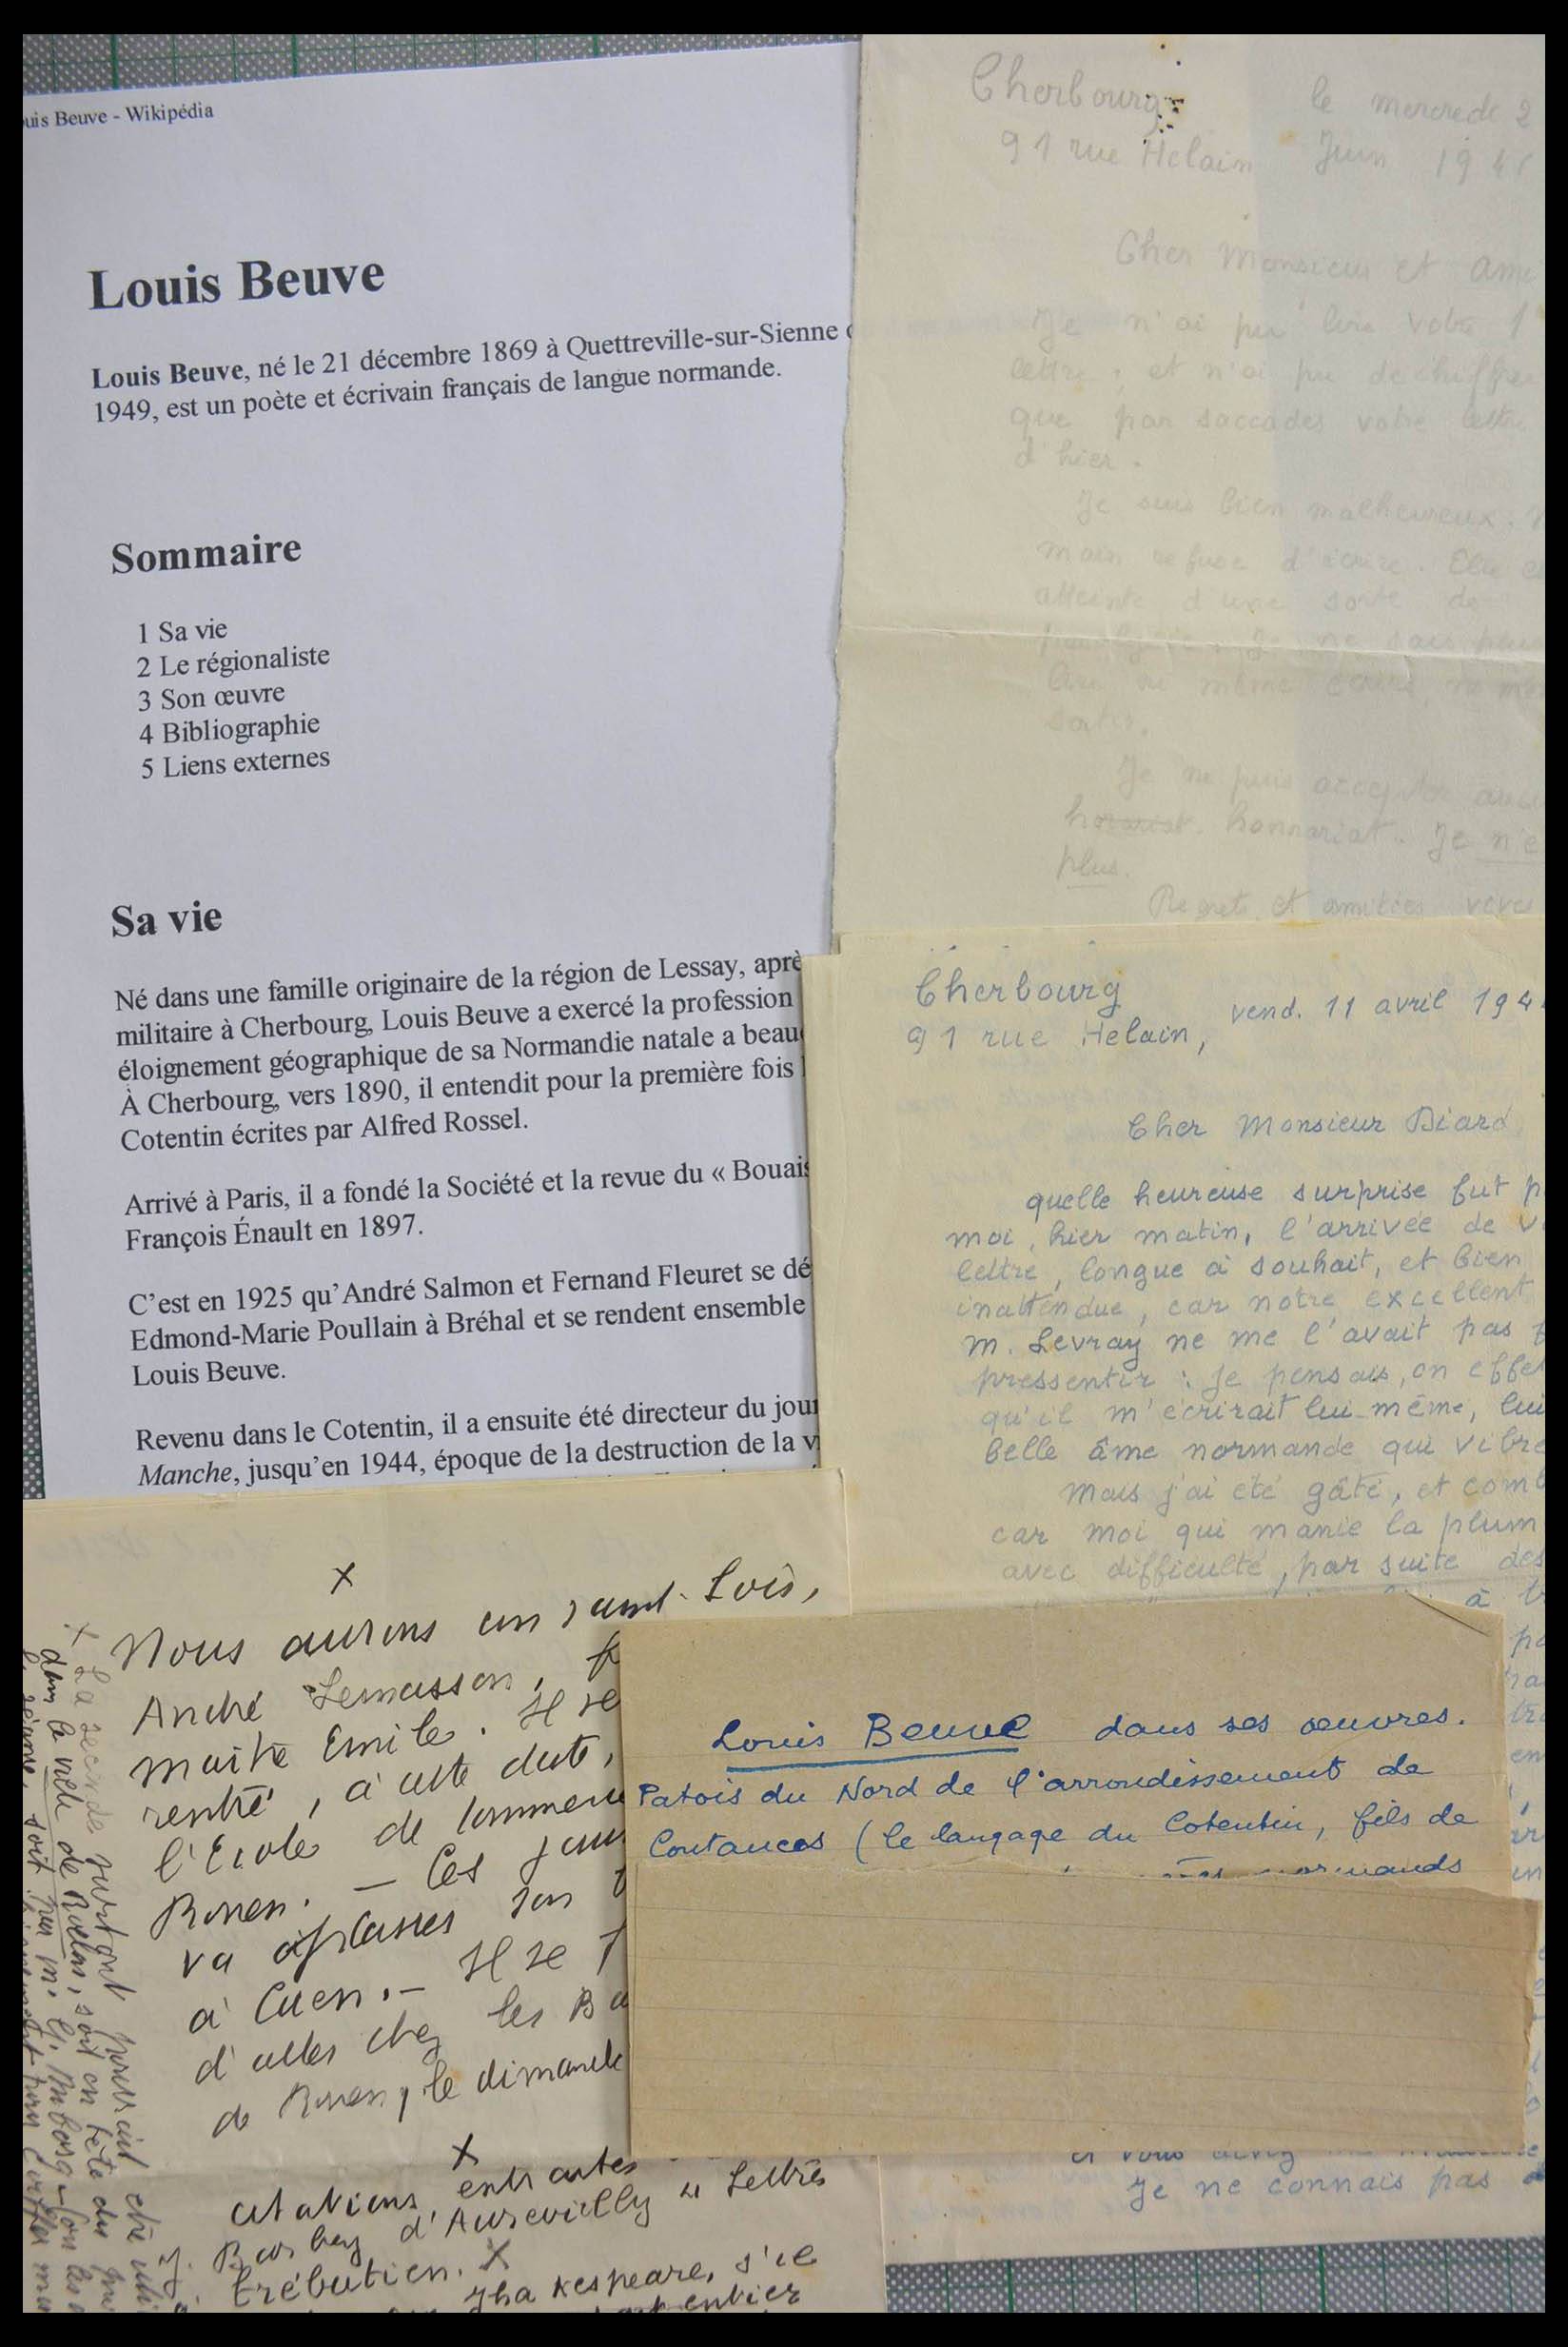 uis Beuve - Wikipédia
Louis Beuve
Louis Beuve, né le 21 décembre 1869 à Quettreville-sur-Sienne
1949, est un poète et écrivain français de langue normande.
Sommaire
1 Sa vie
2 Le régionaliste
3 Son œuvre
4 Bibliographie
5 Liens externes
Sa vie
Né dans une famille originaire de la région de Lessay, aprè
militaire à Cherbourg, Louis Beuve a exercé la profession
éloignement géographique de sa Normandie natale a beau
À Cherbourg, vers 1890, il entendit pour la première fois
Cotentin écrites par Alfred Rossel.
Arrivé à Paris, il a fondé la Société et la revue du « Bouais
François Énault en 1897.
C’est en 1925 qu’André Salmon et Fernand Fleuret se dé
Edmond-Marie Poullain à Bréhal et se rendent ensemble
Louis Beuve.
Revenu dans le Cotentin, il a ensuite été directeur du jour
Manche, jusqu’en 1944, époque de la destruction de la v
Cherbourg le mercredi 2
91 rue Helain Juin 194
Cher Monsieur et ami
Je n'ai pu lire votre 1
lettre, et n'ai pu déchiffrer
que par saccades votre lettre
d'hier.
Je suis bien malheureux :
main refuse d'écrire. Elle
atteinte d'une sorte de
paralysie. Je ne sais
lire ni même écrire, ni me
sortir.
Je ne puis accepter
honnariat. Je n'e
plus.
Regrets et amitiés
Cherbourg
91 rue Helain, vend. 11 avril 194
Cher Monsieur Diard
quelle heureuse surprise fut p
moi, hier matin, l'arrivée de v
lettre, longue à souhait, et bien
inattendue, car notre excellent
M. Levray ne me l'avait pas f
pressentir : Je pensais, en effe
qu'il m'écrirait lui-même, lui
belle âme normande qui vibre
Mais j'ai été gâté, et comb
car moi qui manie la plum
avec difficulté, par suite des
à tr
x
Nous aurons un saint-Lois,
André Lemasson, f
maître Emile. Il se
rentré, à cette date,
l'Ecole de commerce
Rouen. — Ces jour
va à passer son
à Caen. — Il se
d'aller chez les Ba
de Rouen, le dimanche
x
citations, entr'autes
J. Barbey d'Aurevilly "Lettres
à Trébutien. x
Shakespeare, s'il
entier
x La seconde surtout pourrait être
dans le viele de Ruelas, soit en tête du
soit par M. G.
Louis Beuve dans ses œuvres.
Patois du Nord de l'arrondissement de
Coutances (le langage du Cotentin, fils de
normands
et vous
Je ne connais pas